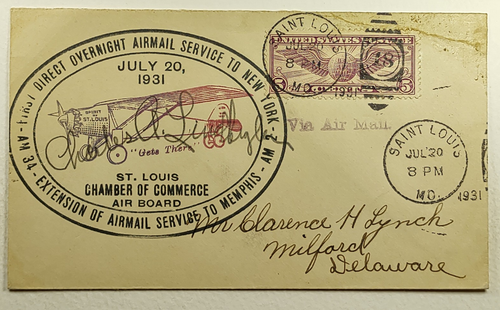 FIRST DIRECT OVERNIGHT AIRMAIL SERVICE TO NEW YORK
JULY 20,
1931
SPIRIT
OF
ST. LOUIS
"Gets There"
ST. LOUIS
CHAMBER OF COMMERCE
AIR BOARD
AM 34 - EXTENSION OF AIRMAIL SERVICE TO MEMPHIS - AM
UNITED STATES POSTAGE
5
5
SAINT LOUIS
JUL 20
8 PM
MO.
1931
Via Air Mail
SAINT LOUIS
JUL 20
8 PM
MO.
1931
Mr Clarence H Lynch
Milford
Delaware